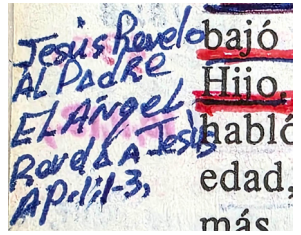 Jesús Revelo
AL PADRE
EL ÁNgEL
Revela a Jesús
Ap.1:1-3,
bajó
Hijo,
habló
edad,
más